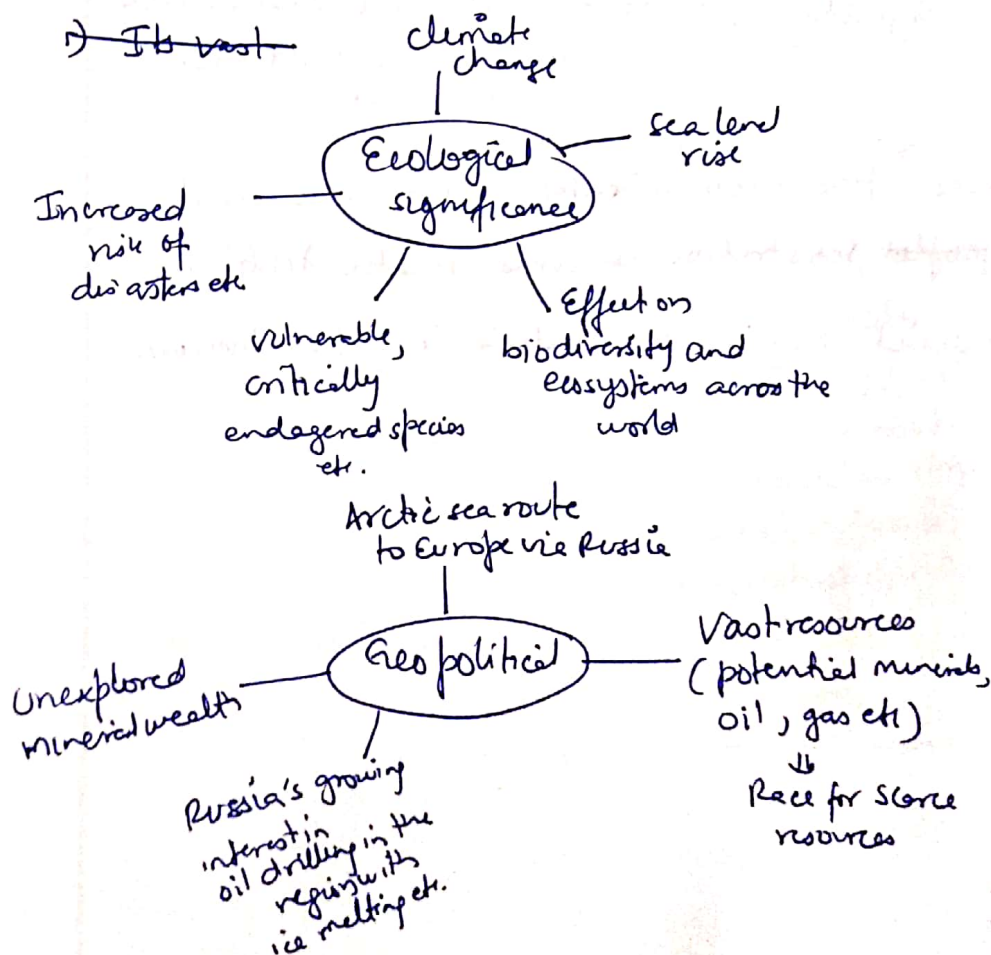 1) Its vast
climate
change
Ecological
significance
sea level
rise
Increased
risk of
disasters etc.
vulnerable,
critically
endagered species
etc.
Effect on
biodiversity and
ecosystems across the
world
Arctic sea route
to Europe via Russia
Geopolitical
Vast resources
(potential minerals,
oil, gas etc)
⇓
Race for scarce
resources
Unexplored
mineral wealth
Russia's growing
interest in
oil drilling in the
region with
ice melting etc.